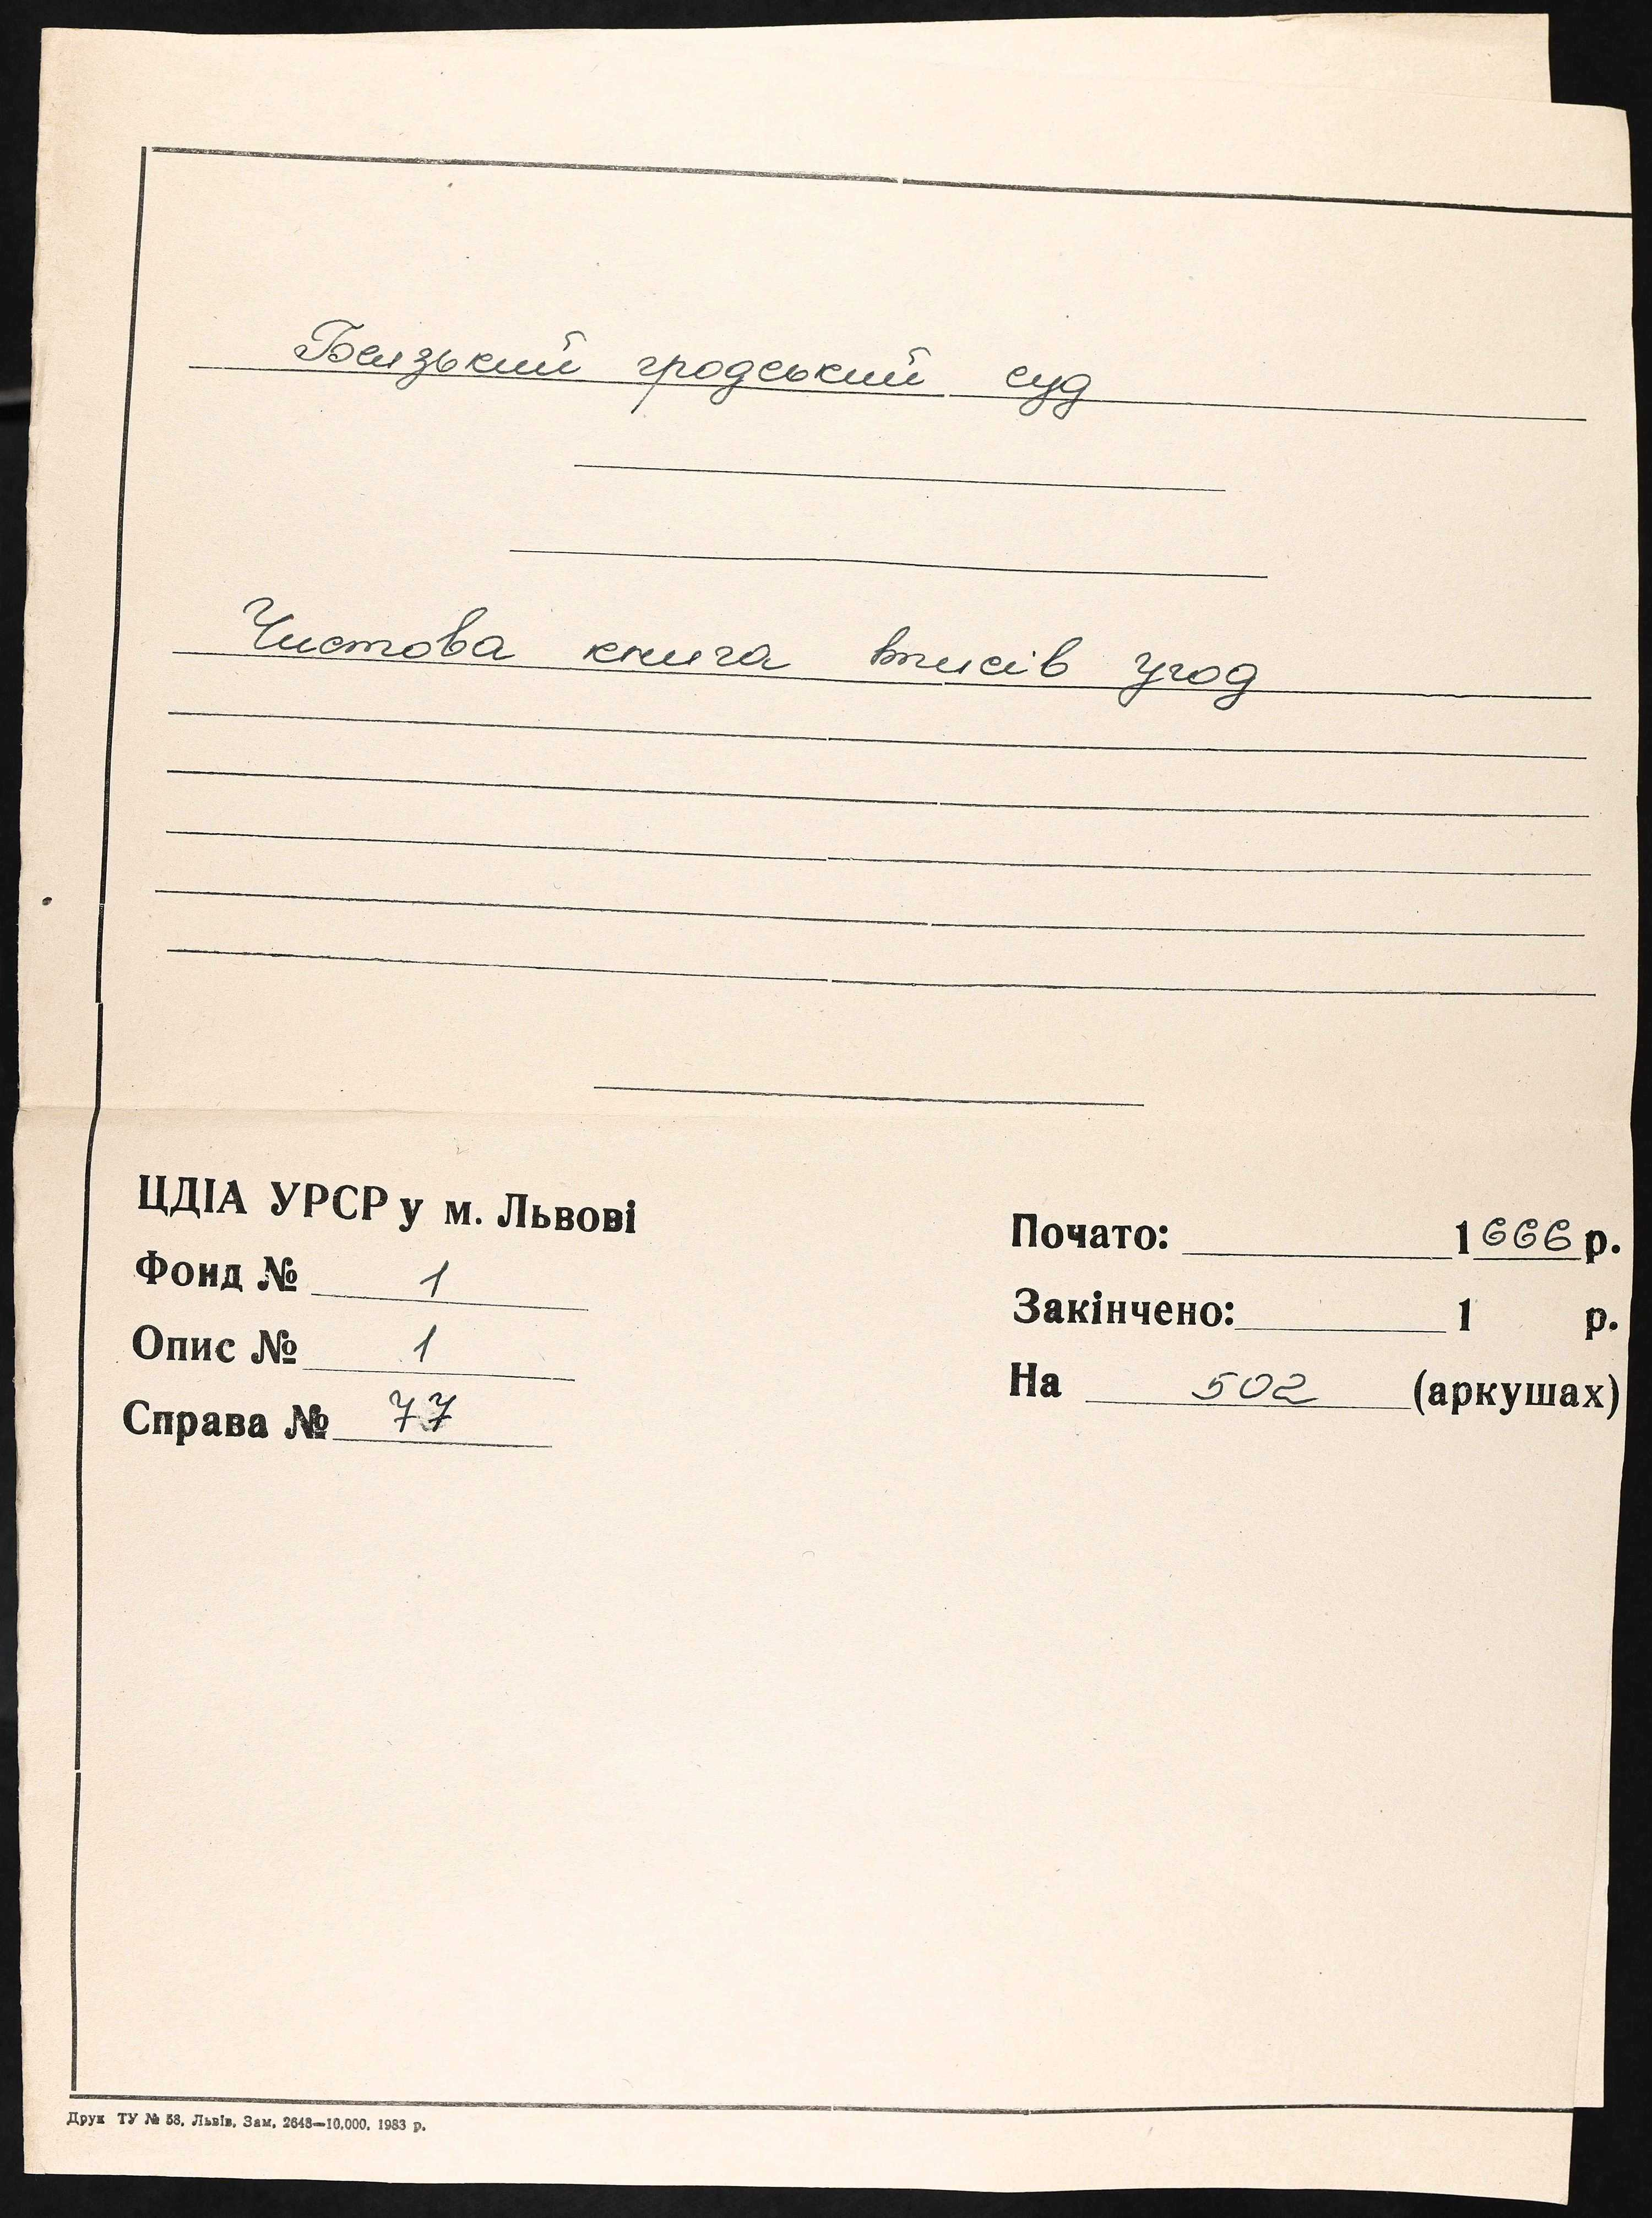 Белзький гродський суд
Чистова книга вписів угод
ЦДІА УРСР у м. Львові
Фонд № 1
Опис № 1
Справа № 77
Почато: 1666 р.
Закінчено: 1 р.
На 502 (аркушах)
Друк ТУ № 58, Львів, Зам. 2648—10.000. 1983 р.